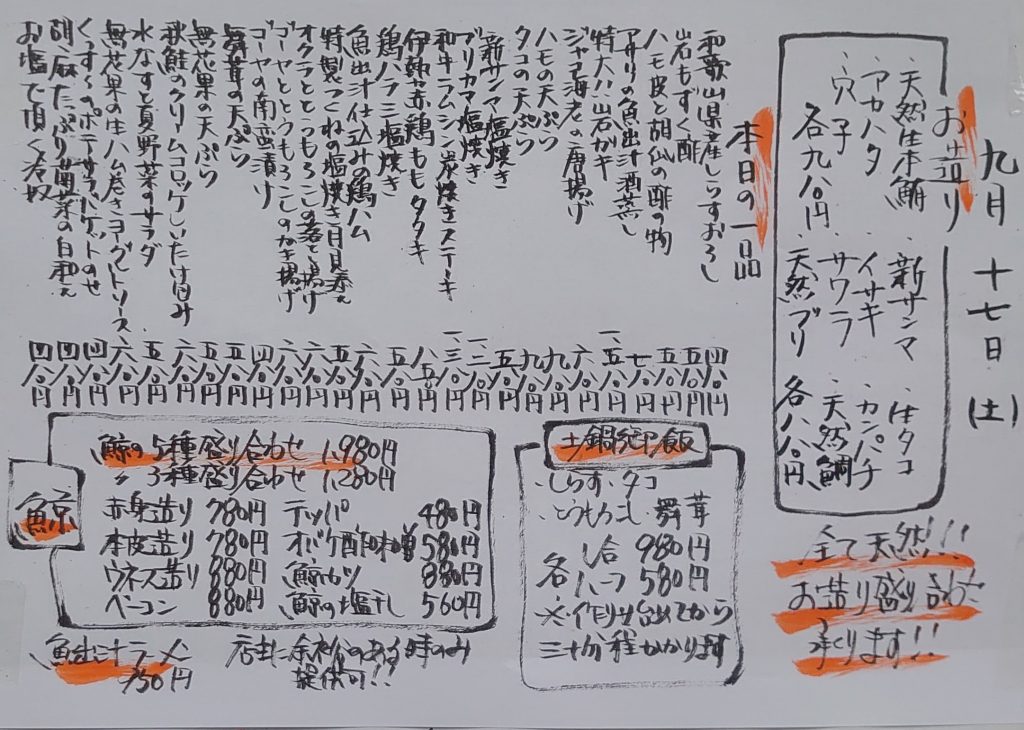 九月十七日(土)
お造り
・天然生本鮪 ・新サンマ ・生タコ
・アカハタ ・イサキ ・カンパチ
・穴子 ・サワラ ・天然鯛
各九八〇円 天然ブリ 各八八〇円
全て天然!!
お造り盛り合わせ
承ります!!
本日の一品
和歌山県産しらすおろし 四八〇円
岩もずく酢 五八〇円
ハモ皮と胡瓜の酢の物 五八〇円
アサリの魚出汁酒蒸し 七八〇円
特大!!岩ガキ 一、五八〇円
ジャコ海老の唐揚げ 六八〇円
ハモの天ぷら 九八〇円
タコの天ぷら 九八〇円
新サンマ塩焼き 五八〇円
ブリカマ塩焼き 一、二八〇円
和牛ラムシン炭焼きステーキ 一、三八〇円
伊勢赤鶏ももタタキ 八五〇円
鶏ハラミ塩焼き 五八〇円
魚出汁仕込みの鶏ハム 六八〇円
特製つくねの塩焼き月見添え 五八〇円
オクラととうもろこしの落とし揚げ 六八〇円
ゴーヤととうもろこしのかき揚げ 六八〇円
ゴーヤの南蛮漬け 四八〇円
舞茸の天ぷら 五八〇円
無花果の天ぷら 五八〇円
秋鮭のクリームコロッケしいたけ包み 六八〇円
水なすと夏野菜のサラダ 五八〇円
無花果の生ハム巻きヨーグルトソース 六八〇円
ポテサラバゲットのせ 四八〇円
胡麻たっぷり菌茸の白和え 四八〇円
お塩で頂く冷奴 四八〇円
土鍋御飯
・しらす・タコ
・とうもろこし・舞茸
各 1合 980円
ハーフ 580円
※作り出てから
三十分程かかります
鯨
鯨の5種盛り合わせ 1,980円
〃3種盛り合わせ 1,280円
赤身造り 780円 テッパ 480円
本皮造り 780円 オバケ酢味噌 580円
ウネス造り 880円 鯨カツ 880円
ベーコン 880円 鯨の塩干し 560円
魚出汁ラーメン
750円
店主に余裕のある時のみ
提供可!!